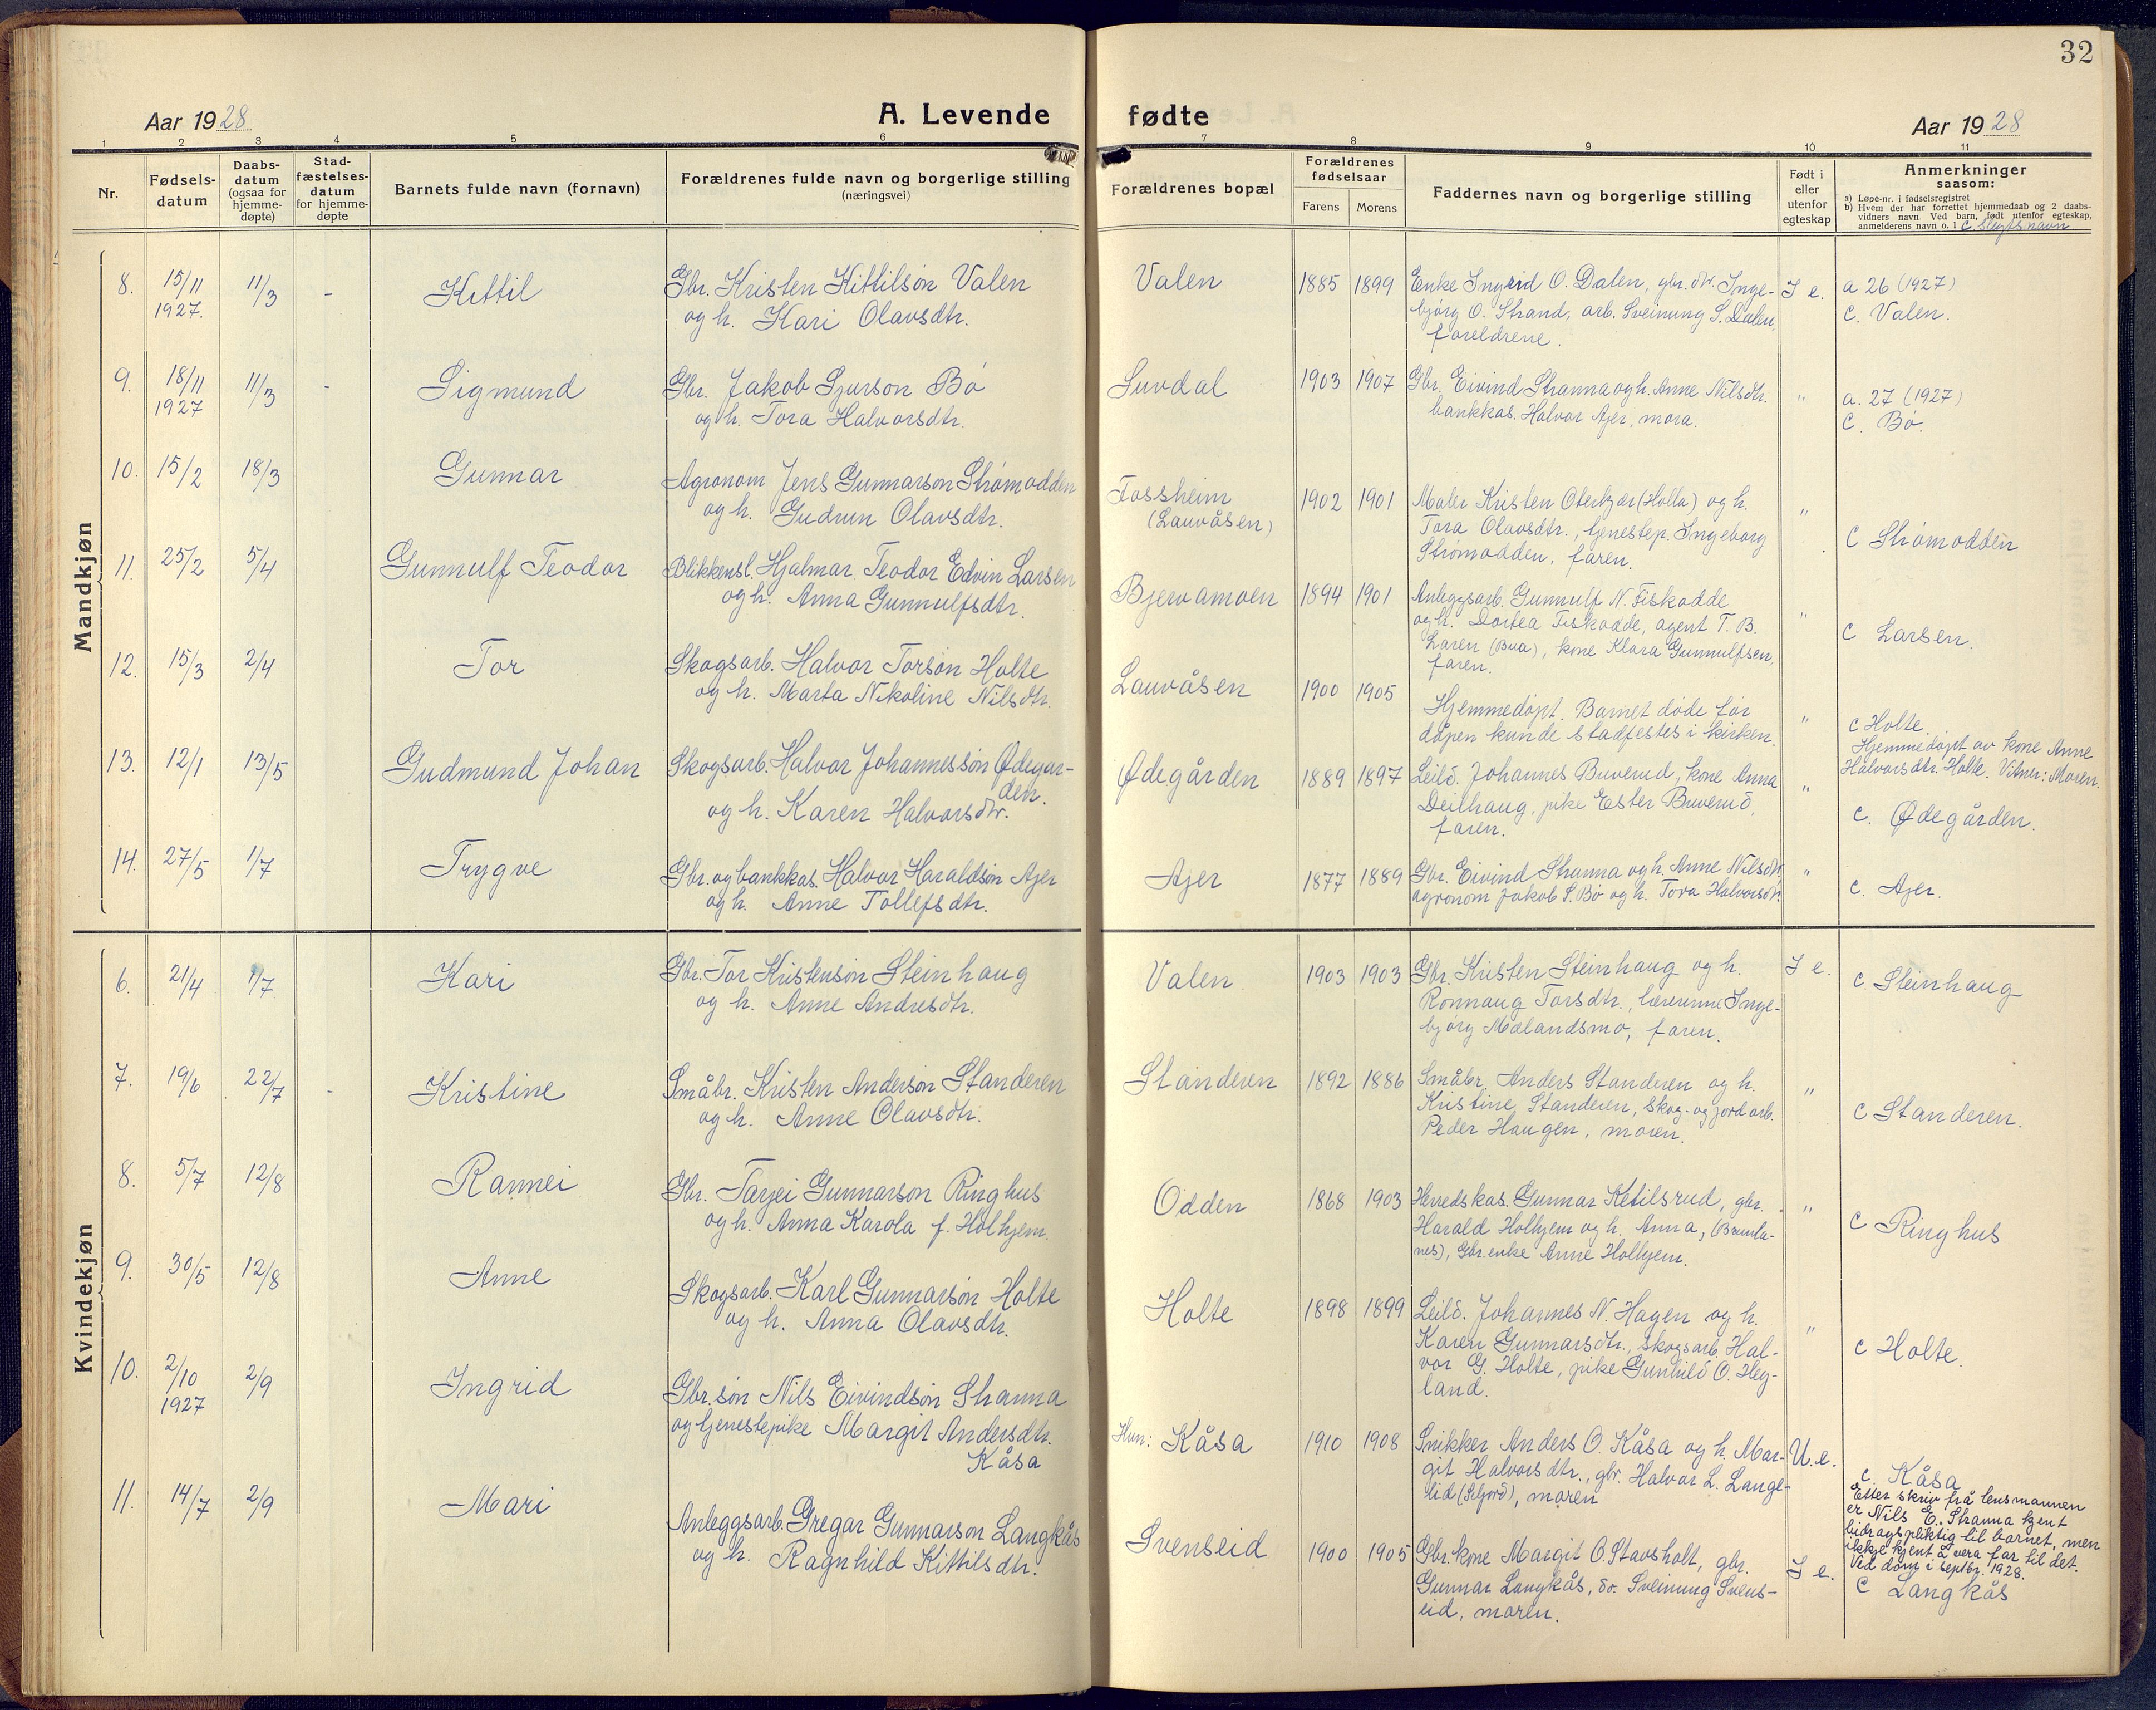 32
Aar 1928
A. Levende fødte
Aar 1928
1 2 3 4 5 6 7 8 9 10 11
Nr.
Fødsels-
datum
Daabs-
datum
(ogsaa for
hjemme-
døpte)
Stad-
fæstelses-
datum
for hjemme-
døpte
Barnets fulde navn (fornavn)
Forældrenes fulde navn og borgerlige stilling
(næringsvei)
Forældrenes bopæl
Forældrenes
fødselsaar
Farens Morens
Faddernes navn og borgerlige stilling
Født i
eller
utenfor
egteskap
Anmerkninger
saasom:
a) Løpe-nr. i fødselsregistret
b) Hvem der har forrettet hjemmedaab og 2 daabs-
vidners navn Ved barn, født utenfor egteskap,
anmelderens navn o. l. c. Slegtsnavn
Mandkjøn
8. 15/11 1927. 11/3 - Kittil
Gbr. Kristen Kittilson Valen
og h. Kari Olavsdtr.
Valen 1885 1899
Enke Ingrid O. Dalen, gbr. dtr. Inge-
bjørg O. Strand, arb. Sveinung S. Dalen,
foreldrene.
I e.
a 26 (1927)
c. Valen.
9. 18/11 1927 11/3 - Sigmund
Gbr. Jakob Sjurson Bø
og h. Tora Halvorsdtr.
Suvdal 1903 1907
Gbr. Eivind Stranna og h. Anne Nilsdtr.
bankkas. Halvor Ajer, mora.
"
a. 27 (1927)
c. Bø.
10. 15/2 18/3 Gunnar
Agronom Jens Gunnarson Strømodden
og h. Gudrun Olavsdtr.
Fossheim
(Lauvåsen)
1902 1901
Maler Kristen Oterkjær (Holla) og h.
Tora Olavsdtr., tjenestep. Ingeborg
Strømodden, faren.
"
c Strømodden
11. 25/2 5/4 Gunnulf Teodor
Blikkensl. Hjalmar Teodor Edvin Larsen
og h. Anna Gunnulfsdtr.
Bjervamoen 1894 1901
Anleggsarb. Gunnulf N. Fiskodde
og h. Dortea Fiskodde, agent T. B.
Laren (Bua), kone Klara Gunnulfsen,
faren.
"
c Larsen.
12. 15/3 2/4 Tor
Skogsarb. Halvor Torson Holte
og h. Marta Nikoline Nilsdtr.
Lauvåsen 1900 1905
Hjemmedøpt. Barnet døde før
dåpen kunde stadfestes i kirken.
"
c Holte.
Hjemmedøpt av kone Anne
Halvorsdtr. Holte. Vitner: Moren.
13. 12/1 13/5 Gudmund Johan
Skogsarb. Halvor Johannesson Ødegår-
den.
og h. Karen Halvorsdtr.
Ødegården 1889 1897
Leild. Johannes Buverud, kone Anna
Deilhaug, pike Ester Buverud,
faren.
"
c. Ødegården.
14. 27/5 1/7 Trygve
Gbr. og bankkas. Halvor Haraldson Ajer
og h. Anne Tollefsdtr.
Ajer 1877 1889
Gbr. Eivind Stranna og h. Anne Nilsdtr.
agronom Jakob S. Bø og h. Tora Halvorsdtr.
"
c. Ajer.
Kvindekjøn
6. 21/4 1/7 Kari
Gbr. Tor Kristenson Steinhaug
og h. Anne Andresdtr.
Valen 1903 1903
Gbr. Kristen Steinhaug og h.
Ronnaug Torsdtr., lærerinne Inge-
bjørg Mælandsmo, faren.
I e.
c. Steinhaug
7. 19/6 22/7 - Kristine
Småbr. Kristen Anderson Standeren
og h. Anne Olavsdtr.
Standeren 1892 1886
Småbr. Anders Standeren og h.
Kristine Standeren, skog- og jordarb.
Peder Haugen, moren.
"
c Standeren.
8. 5/7 12/8 Rannei
Gbr. Tarjei Gunnarson Ringhus
og h. Anna Karola f. Holhjem.
Odden 1868 1903
Herredskas. Gunnar Ketilsrud, gbr.
Harald Holhjem og h. Anna, (Brunla-
nes), Gbr. enke Anne Holhjem.
"
c Ringhus
9. 30/5 12/8 Anne
Skogsarb. Karl Gunnarson Holte
og h. Anna Olavsdtr.
Holte 1898 1899
Leild. Johannes N. Hagen og h.
Karen Gunnarsdtr., skogsarb. Hal-
vor G. Holte, pike Gunhild O. Heg-
land.
"
c Holte.
10. 2/10 1927 2/9 Ingrid
Gbr. søn Nils Eivindson Stranna
og tjenestepike Margit Andersdtr.
Kåsa
Hun: Kåsa 1910 1908
Snikker Anders O. Kåsa og h. Mar-
git Halvorsdtr., gbr. Halvor L. Lange-
lid (Seljord), moren
U. e.
c. Kåsa
Etter skriv frå lensmannen
er Nils E. Stranna kjent
bidragspliktig til barnet, men
ikkje kjent å vera far til det.
Ved dom i septbr. 1928.
11. 14/7 2/9 Mari
Anleggsarb. Gregar Gunnarson Langkås
og h. Ragnhild Kittilsdtr.
Svenseid 1900 1905
Gbr. kone Margit O. Stavsholt, gbr.
Gunnar Langkås, do. Sveinung Svens-
eid, moren.
I e.
c Langkås